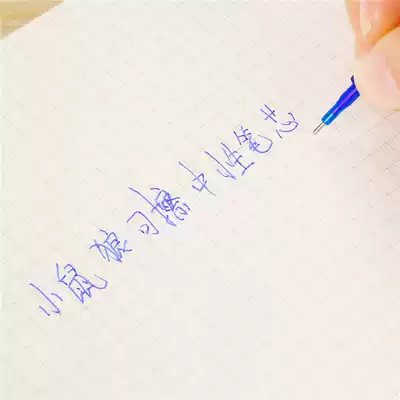 小鼠狼可擦中性笔芯